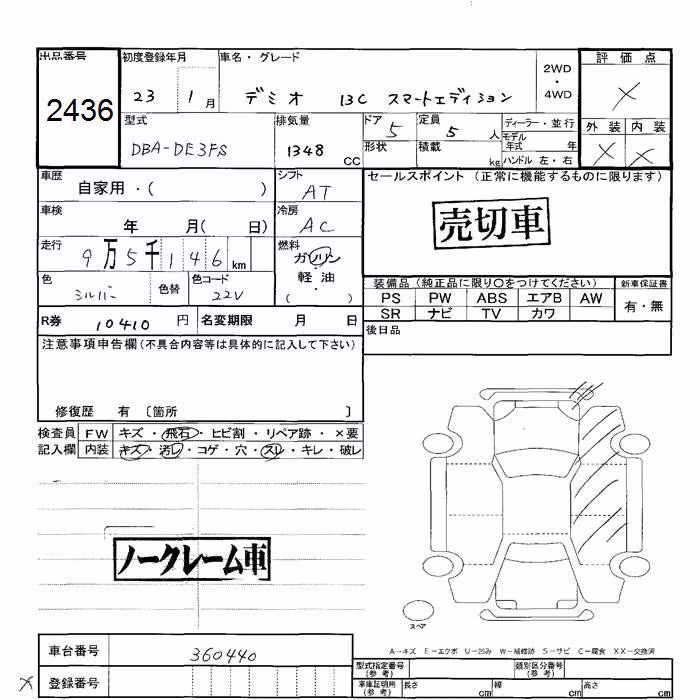 出品番号 2436
初度登録年月 23 1月
車名・グレード デミオ 13C スマートエディション
2WD・4WD
評価点 X
外装 内装
X X
型式 DBA-DE3FS
排気量 1348 CC
ドア 5 形状
定員 5 人
積載 kg
ディーラー・並行
モデル年式 年
ハンドル 左・右
車歴 自家用・( )
シフト AT
車検 年 月( 日)
冷房 AC
走行 9万5千146 km
燃料 ガソリン・軽油・( )
色 シルバー 色替
色コード 22V
R券 10410 円
名変期限 月 日
セールスポイント(正常に機能するものに限ります)
売切車
装備品(純正品に限り○をつけてください) 新車保証書
PS PW ABS エアB AW 有・無
SR ナビ TV カワ
後日品
注意事項申告欄(不具合内容等は具体的に記入して下さい)
修復歴 有 〔箇所 〕
検査員記入欄
FW キズ・飛石・ヒビ割・リペア跡・×要
内装 キズ・汚レ・コゲ・穴・スレ・キレ・破レ
ノークレーム車
スペア
A-キズ E-エクボ U-凹み W-補修跡 S-サビ C-腐食 XX-交換済
車台番号 360440
X 登録番号
型式指定番号(参考) 類別区分番号(参考)
車庫証明用(参考) 長さ cm 幅 cm 高さ cm